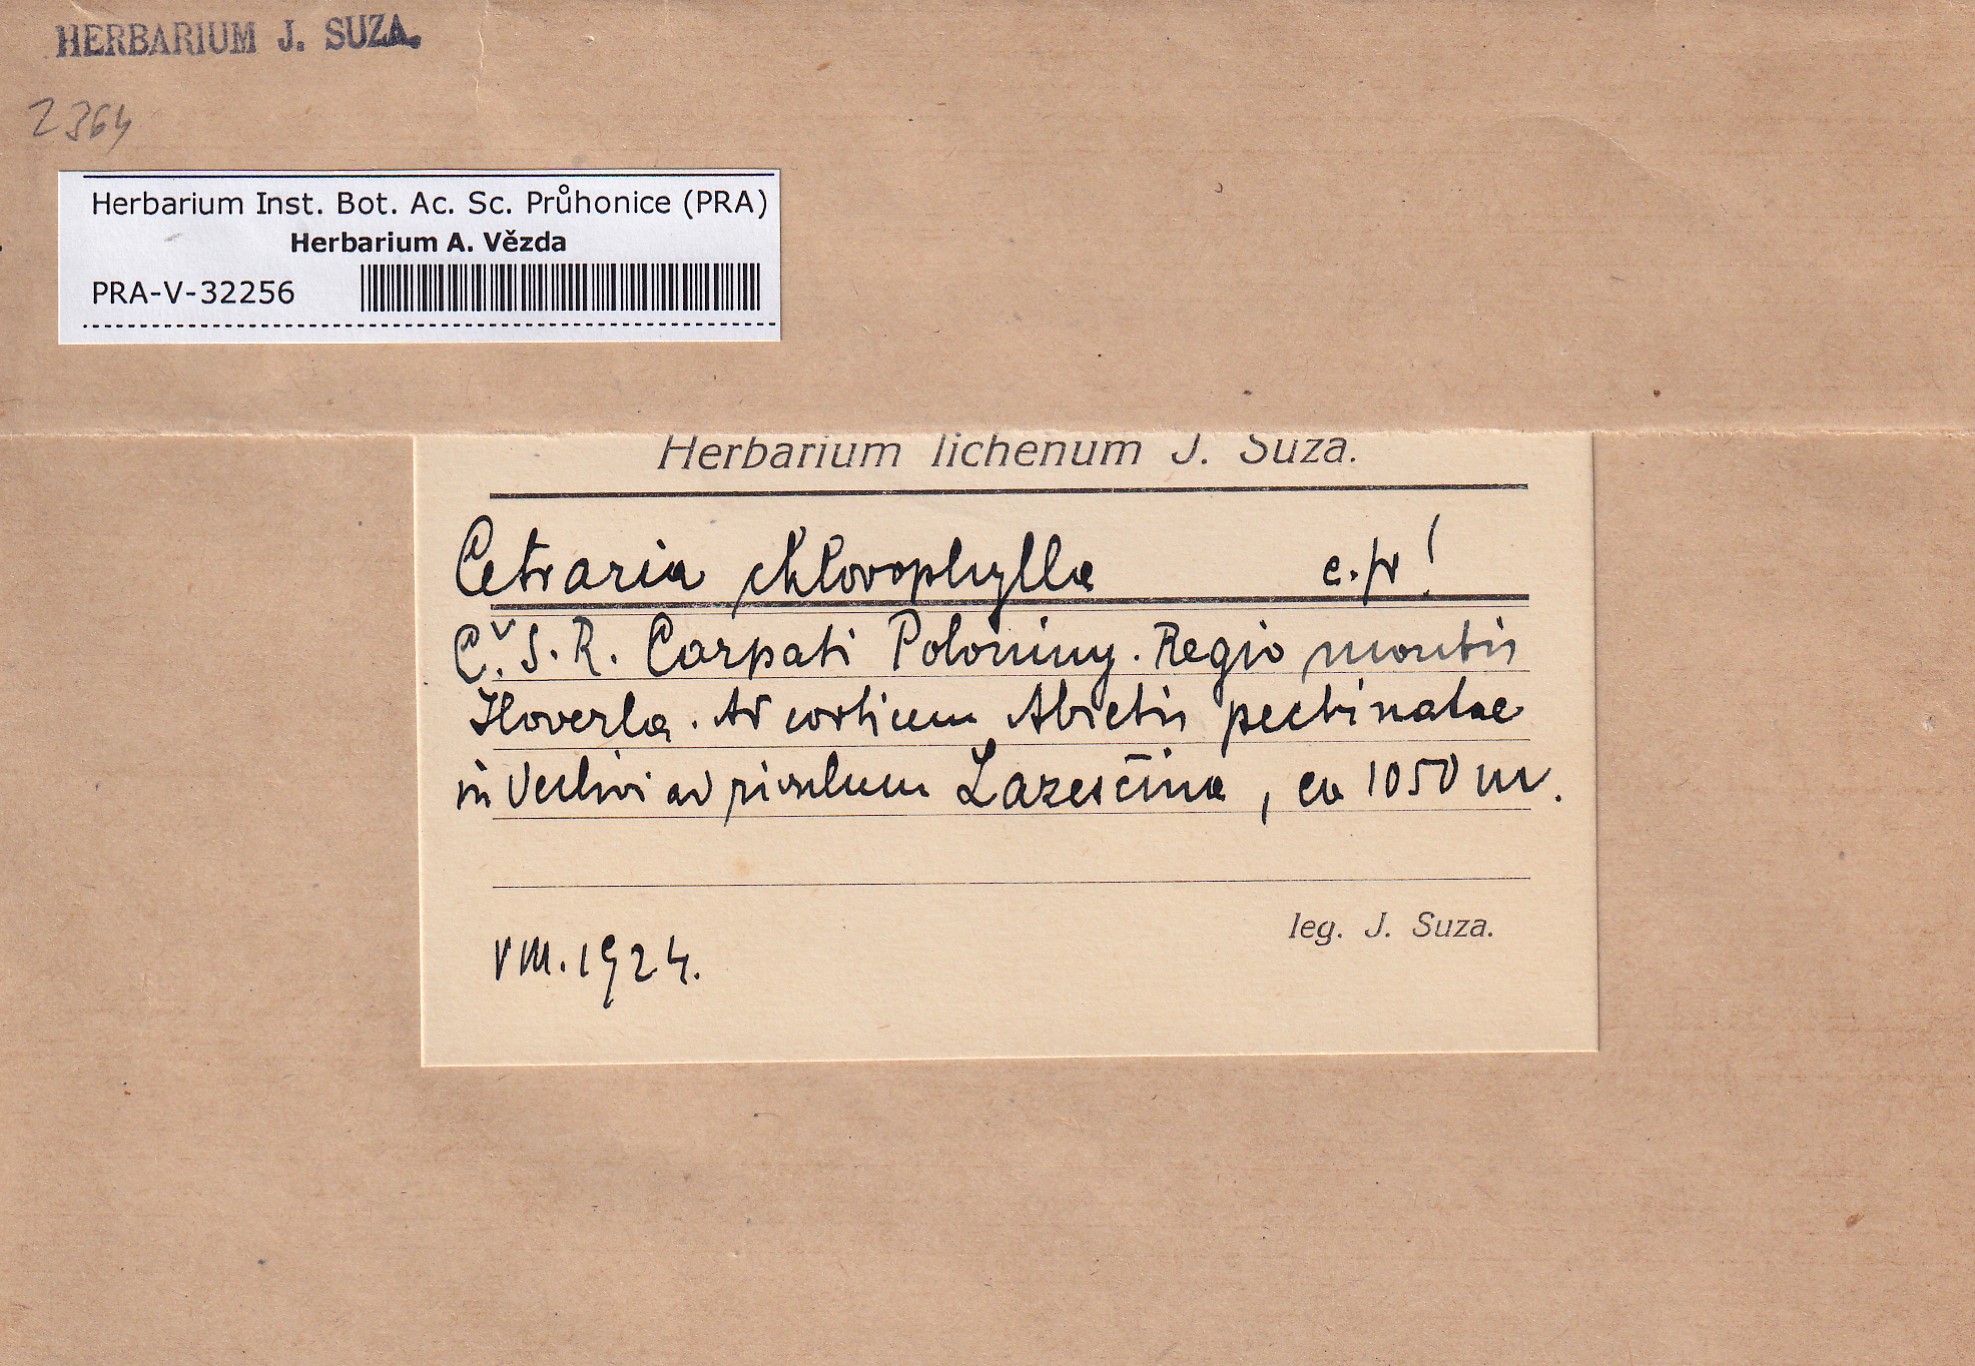 HERBARIUM J. SUZA.
2364
Herbarium Inst. Bot. Ac. Sc. Průhonice (PRA)
Herbarium A. Vězda
PRA-V-32256
Herbarium lichenum J. Suza.
Cetraria chlorophylla c.fr!
Č.S.R. Carpati Poloniny. Regio montis
Hoverla. Ad corticem Abietis pectinatae
in declivi ad rivulum Lazesčina, ca 1050 m.
leg. J. Suza.
VIII. 1924.